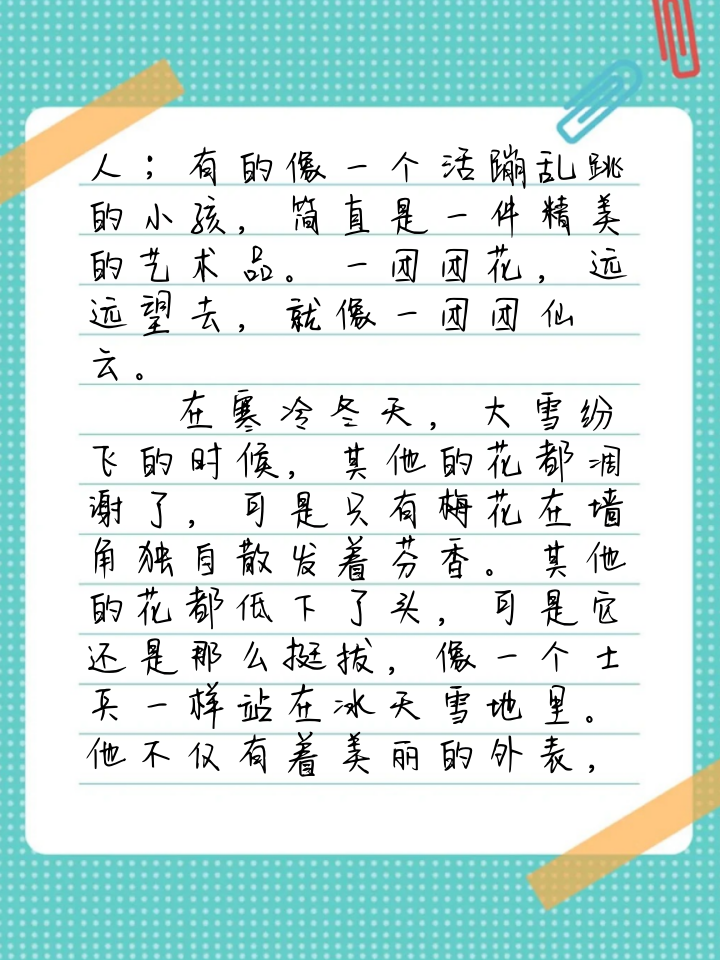 人；有的像一个活蹦乱跳
的小孩，简直是一件精美
的艺术品。一团团花，远
远望去，就像一团团仙
云。
在寒冷冬天，大雪纷
飞的时候，其他的花都凋
谢了，可是只有梅花在墙
角独自散发着芬香。其他
的花都低下了头，可是它
还是那么挺拔，像一个士
兵一样站在冰天雪地里。
他不仅有着美丽的外表，